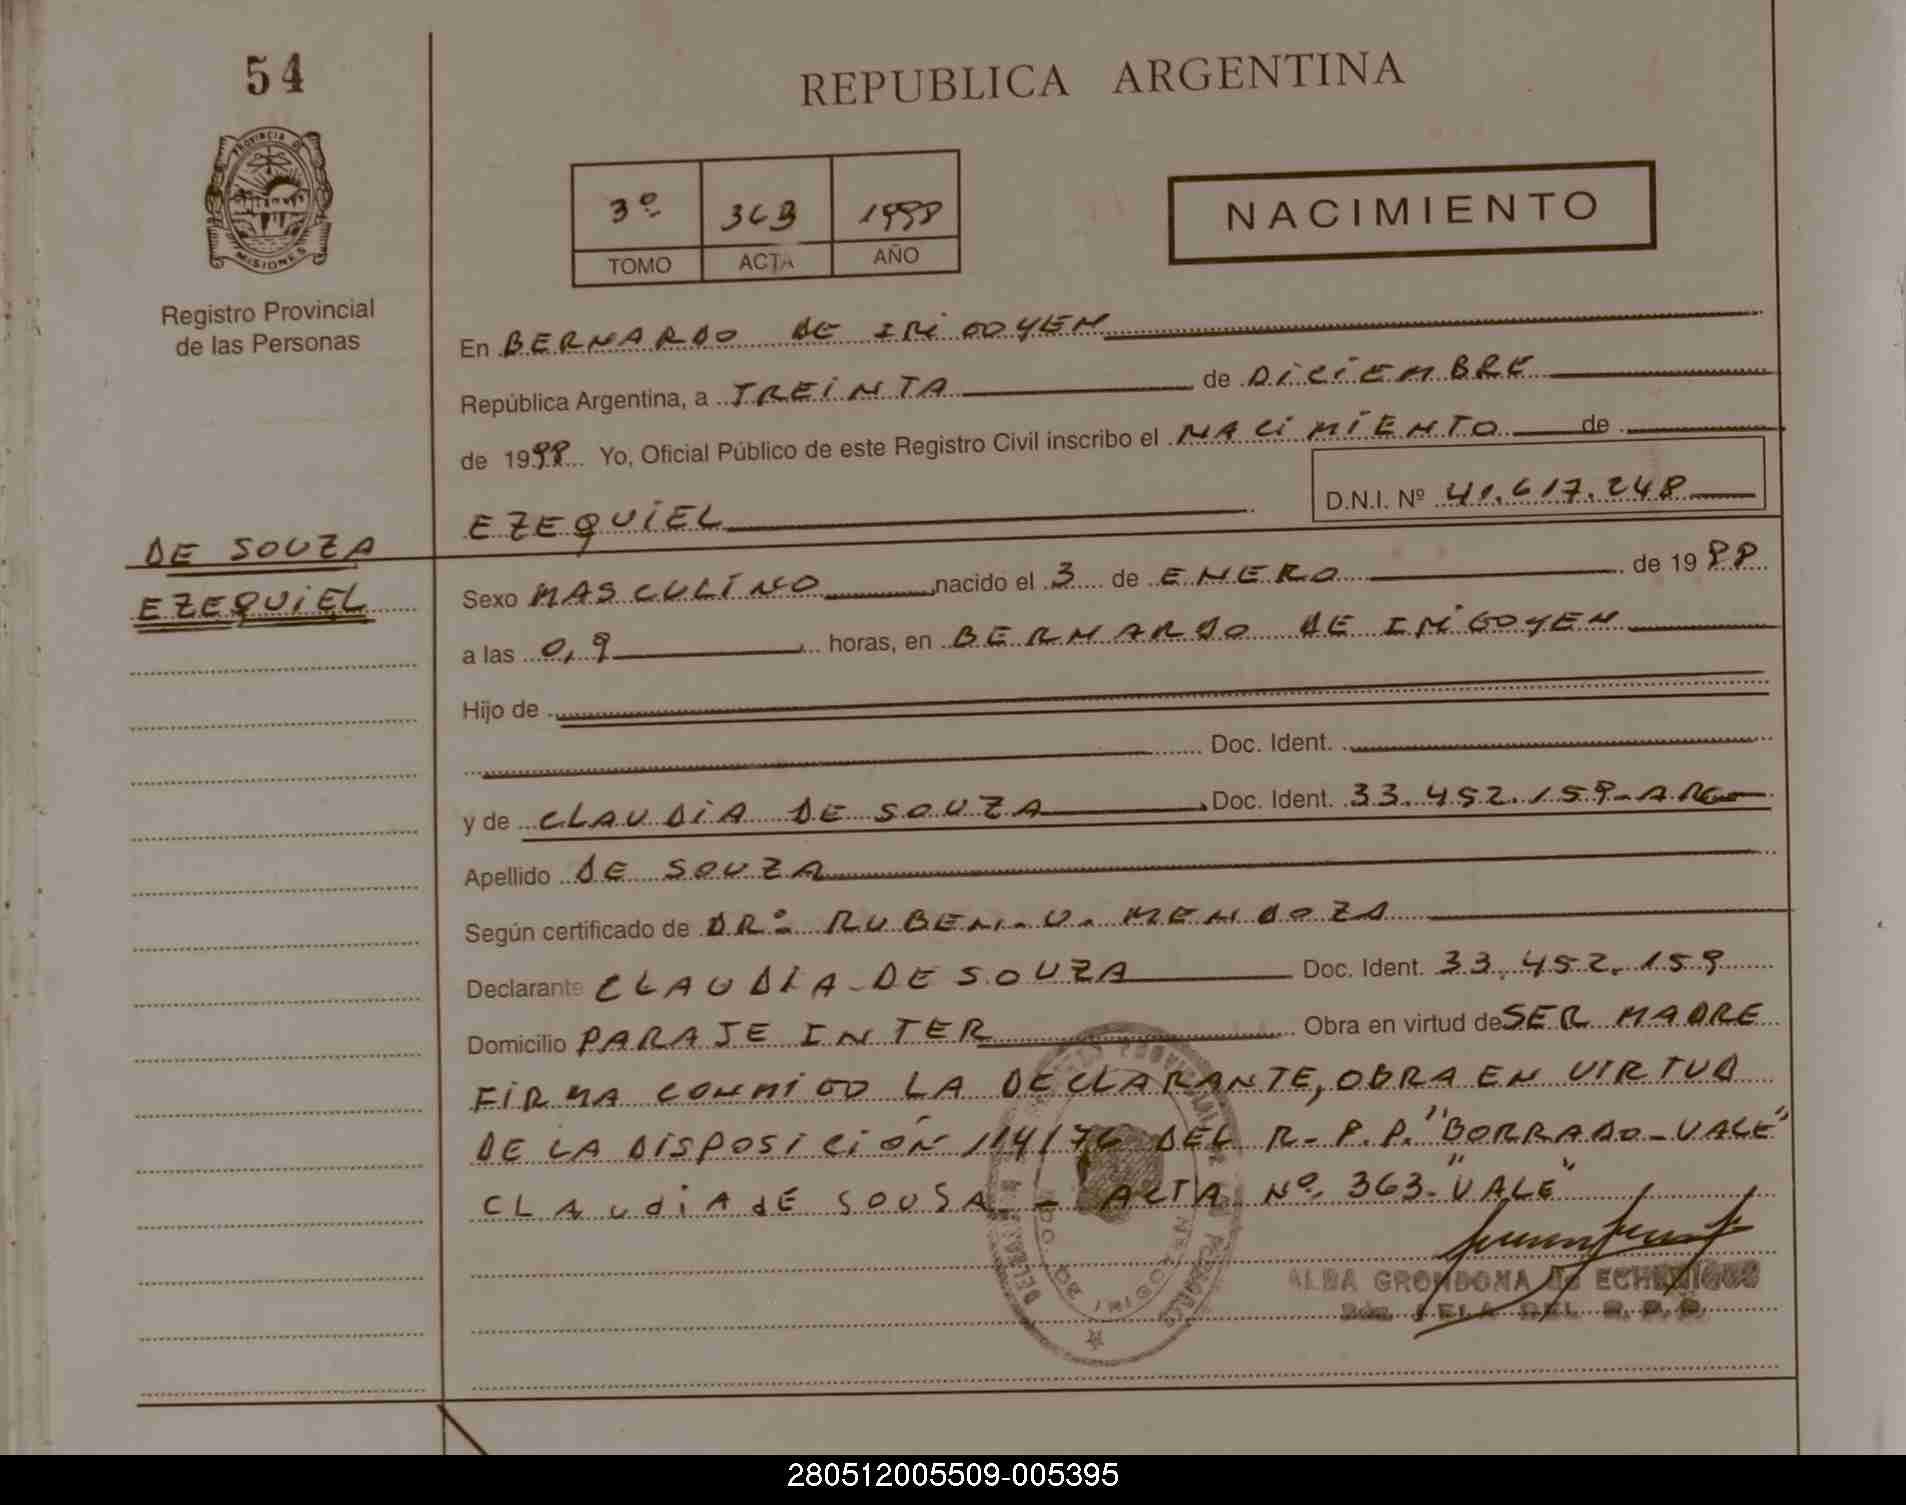 54
REPUBLICA ARGENTINA
PROVINCIA DE
MISIONES
Registro Provincial
de las Personas
3º 363 1998
TOMO ACTA AÑO
NACIMIENTO
En BERNARDO DE IRIGOYEN
República Argentina, a TREINTA de DICIEMBRE
de 1998 Yo, Oficial Público de este Registro Civil inscribo el NACIMIENTO de
EZEQUIEL D.N.I. Nº 41.617.248
DE SOUZA
EZEQUIEL
Sexo MASCULINO nacido el 3 de ENERO de 1998
a las 0,9 horas, en BERNARDO DE IRIGOYEN
Hijo de
Doc. Ident.
y de CLAUDIA DE SOUZA Doc. Ident. 33.452.159-ARG
Apellido DE SOUZA
Según certificado de DR. RUBEN.U. MENDOZA
Declarante CLAUDIA DE SOUZA Doc. Ident. 33.452.159
Domicilio PARAJE INTER Obra en virtud de SER MADRE
FIRMA CONMIGO LA DECLARANTE, OBRA EN VIRTUD
DE LA DISPOSICIÓN 114/76 DEL R.P.P. "BORRADO-VALE"
CLAudiA dE SOUSA - ACTA Nº 363-"VALE"
ALBA GRONDONA de
DEL R.P.P.
280512005509-005395